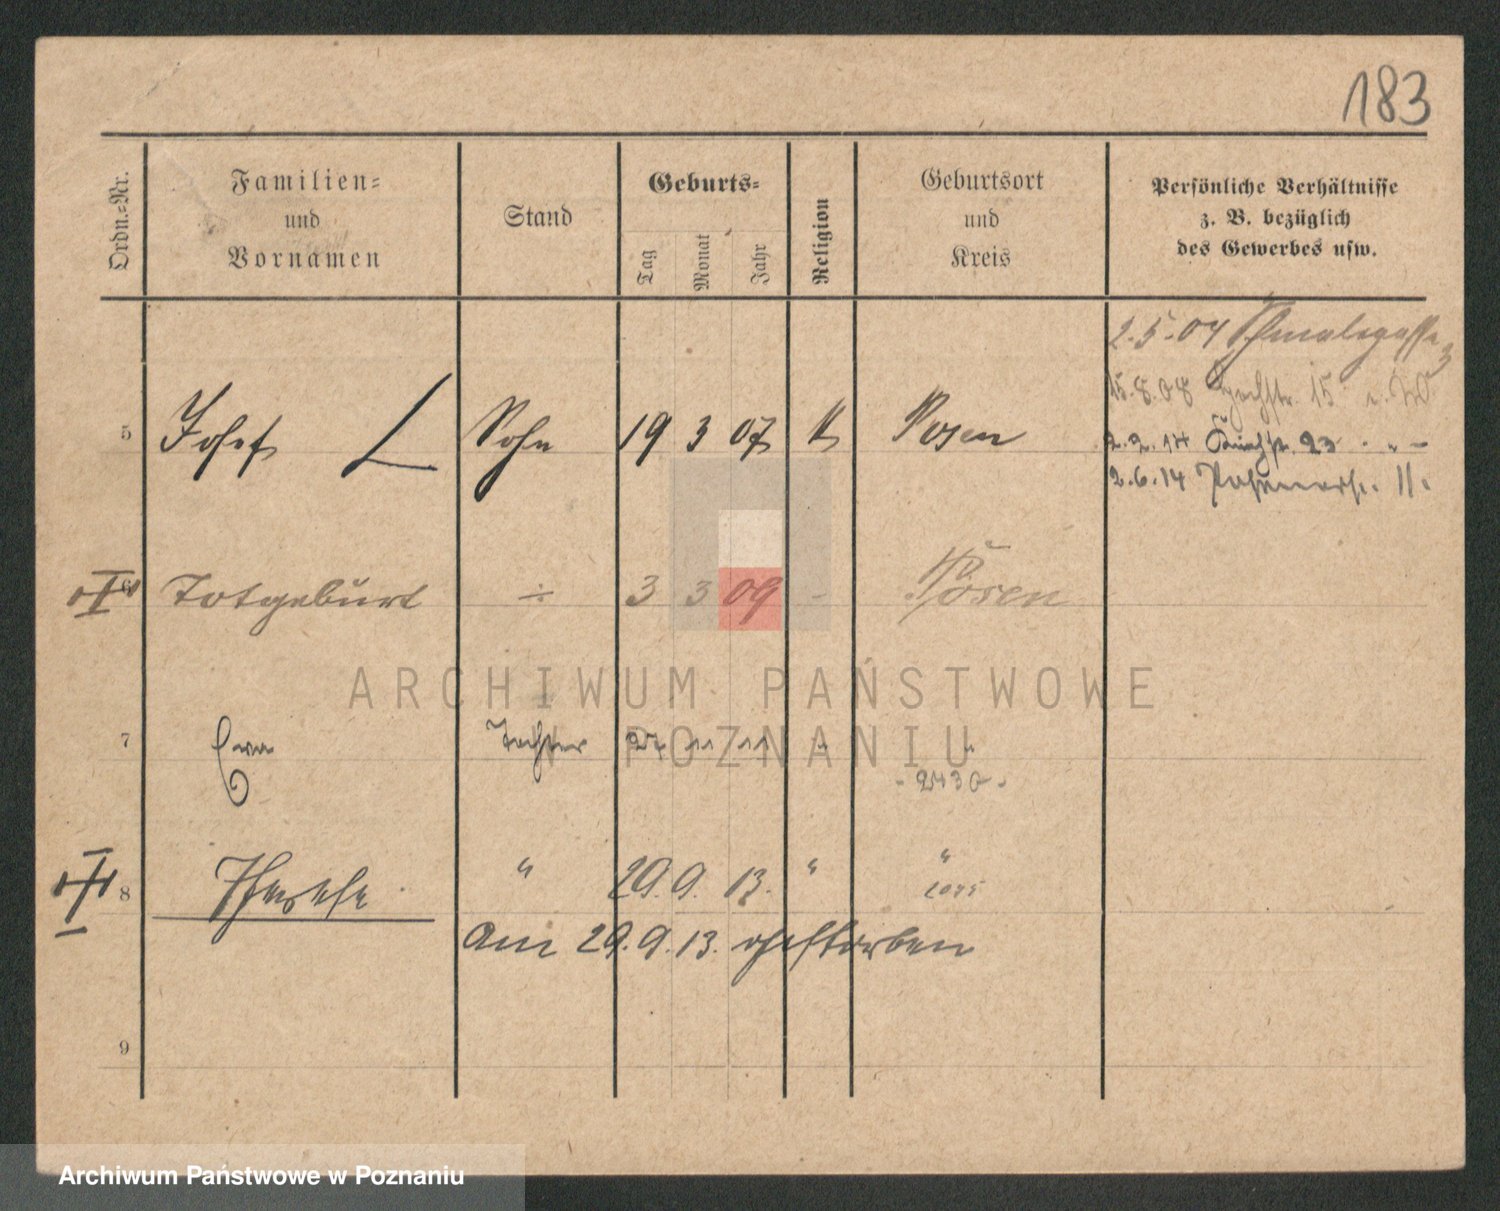 183
Ordn.-Nr.
Familien-
und
Vornamen
Stand
Geburts-
Tag
Monat
Jahr
Religion
Geburtsort
und
Kreis
Persönliche Verhältnisse
z. B. bezüglich
des Gewerbes usw.
2.5.04 Schmalegasse 3
15.8.08 15
5 Josef Sohn 19 3 07 k Posen
2.2.14 23 " -
2.6.14 11.
6 Totgeburt ÷ 3 3 09 - Posen
ARCHIWUM PAŃSTWOWE
W POZNANIU
7 Eva Tochter 27 11 11 " "
- 2430 -
8 Therese " 29. 9. 13. " "
2095
am 29. 9. 13. gestorben
9
Archiwum Państwowe w Poznaniu